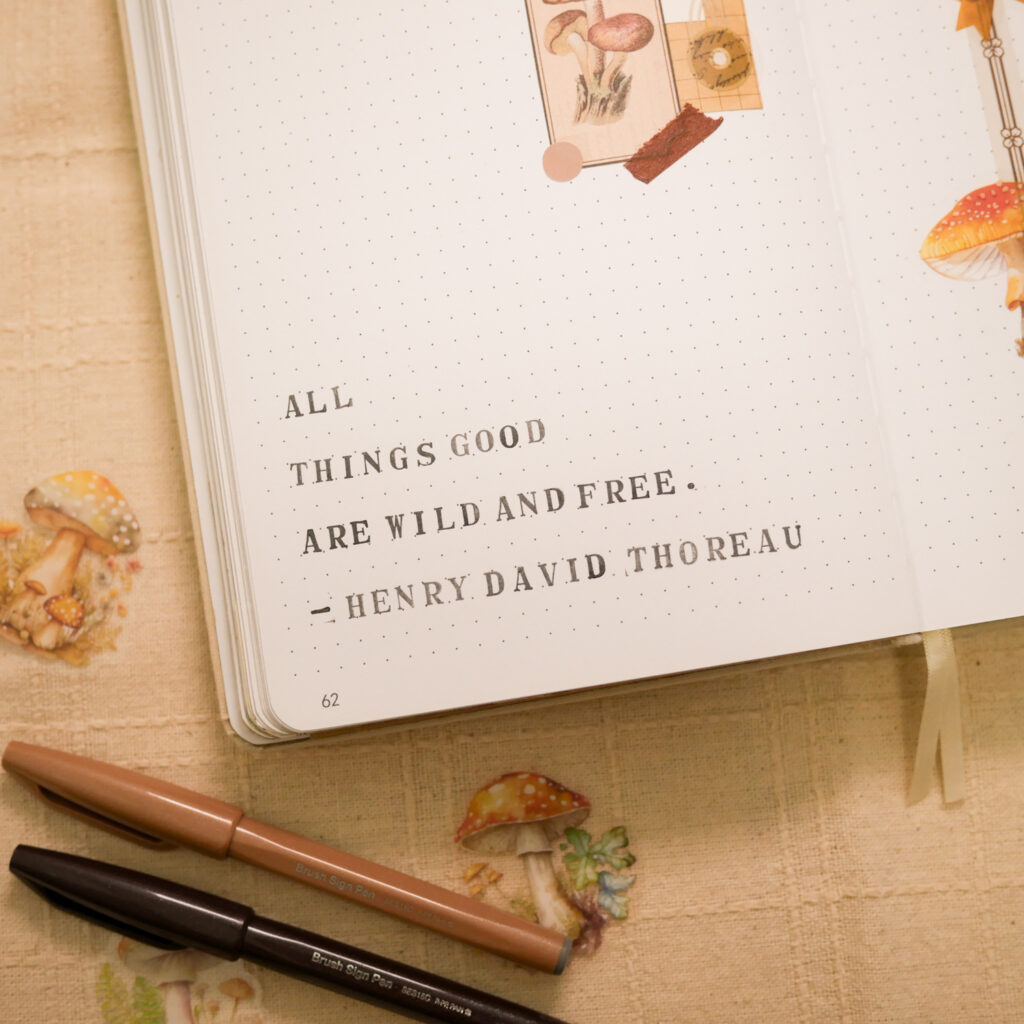 ALL
THINGS GOOD
ARE WILD AND FREE.
- HENRY DAVID THOREAU
62
Brush Sign Pen
Brush Sign Pen